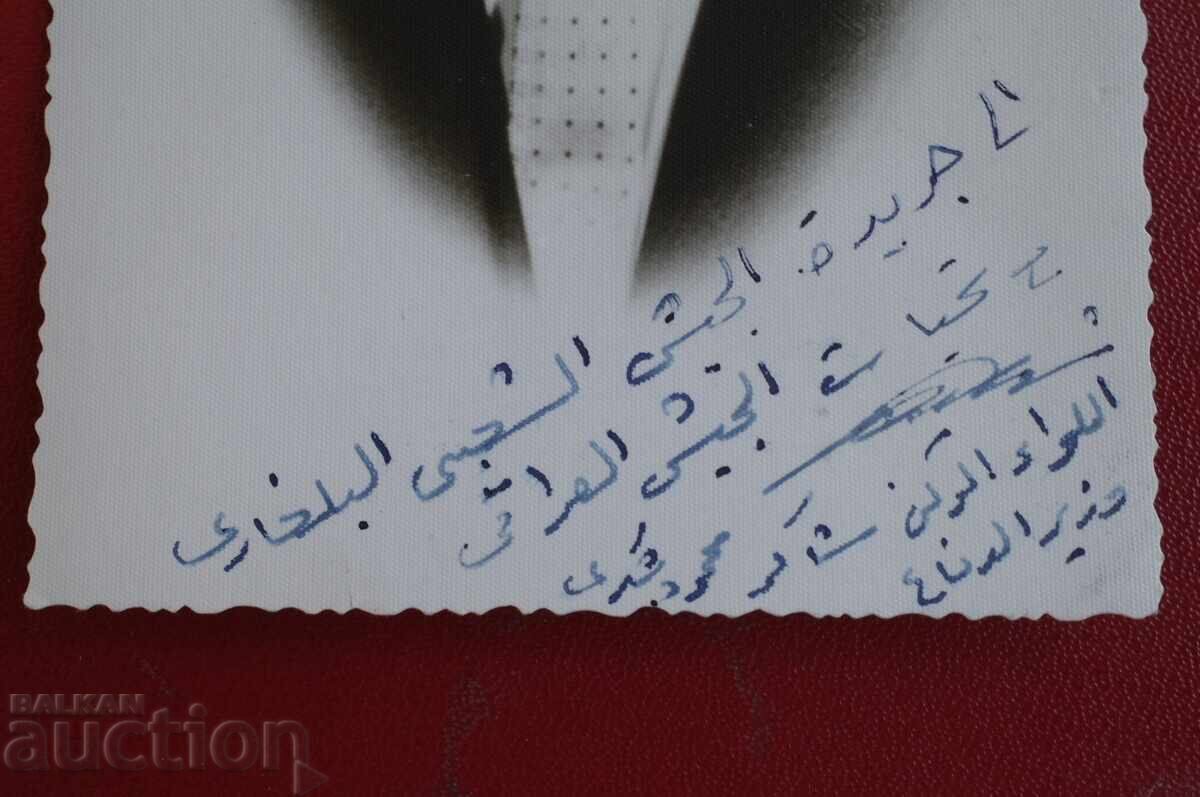 الى جريدة الجيش الشعبي البلغاري
مع تحيات الجيش العراقي
اللواء الركن شاكر محمود شكري
وزير الدفاع
BALKAN
auction